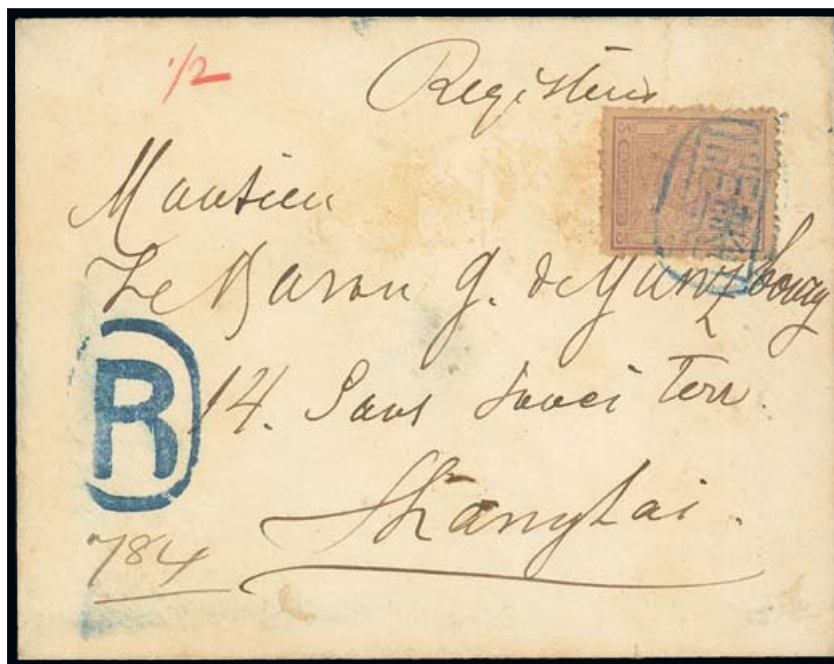 1/2
Registered
Monsieur
Le Baron G. de Gunzbourg
R
14. Sans Souci Terr.
Shanghai.
784